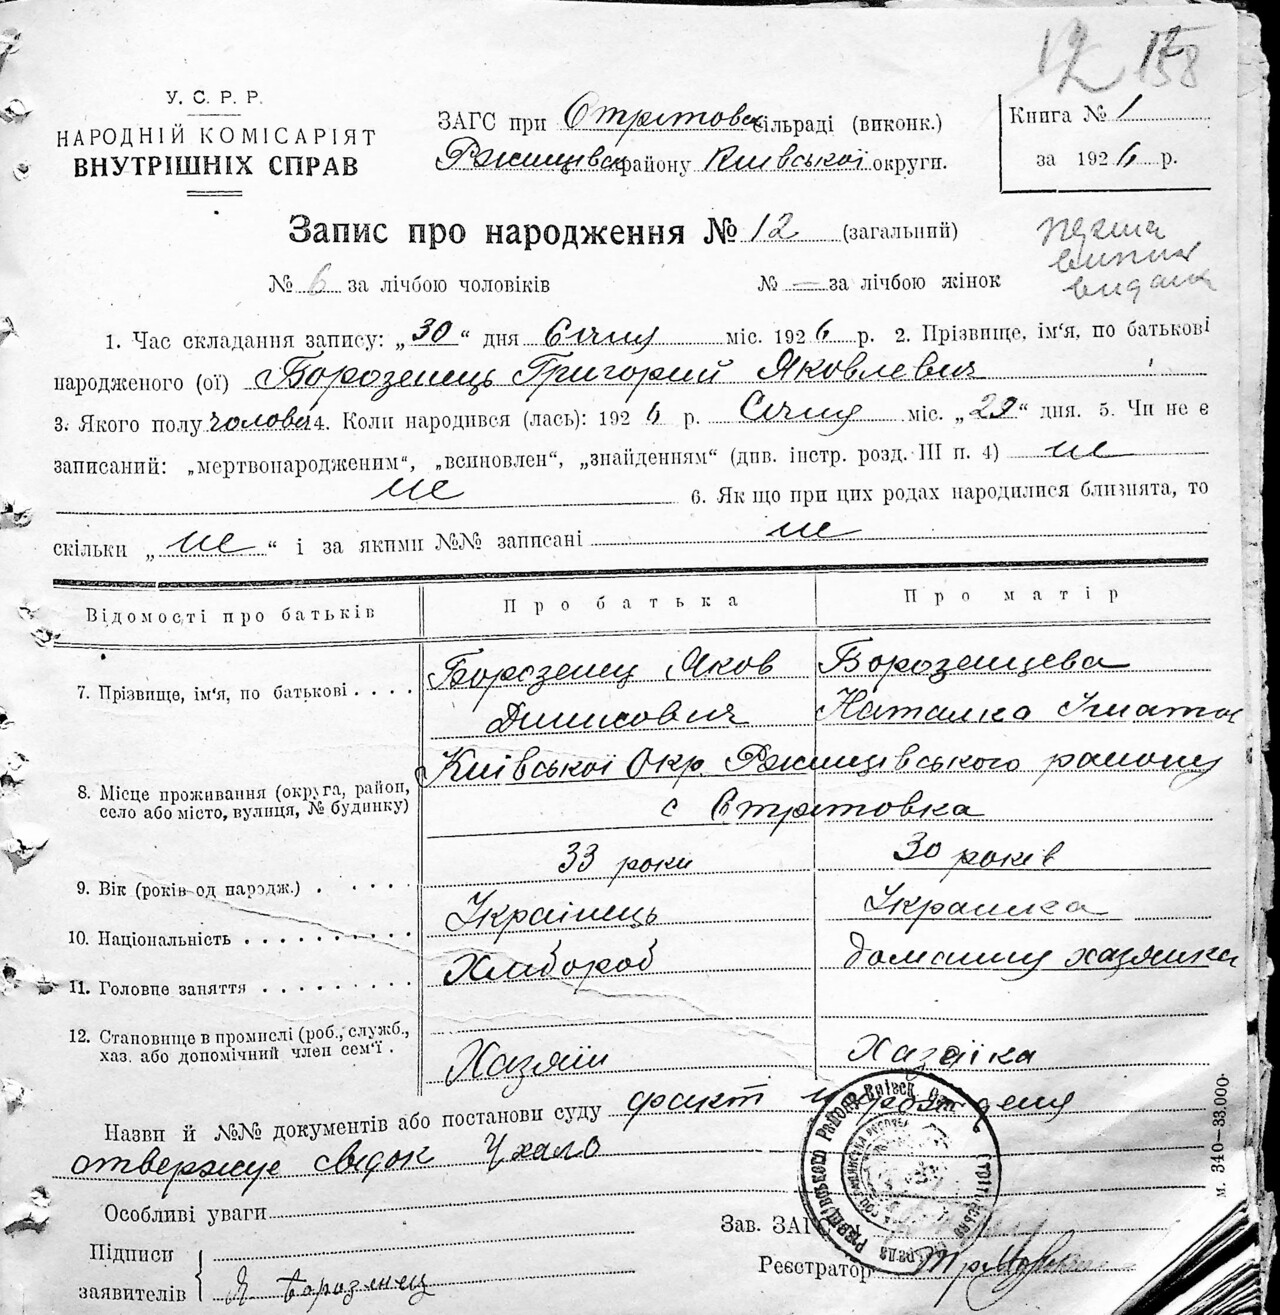 12 158
У. С. Р. Р.
НАРОДНІЙ КОМІСАРІЯТ
ВНУТРІШНІХ СПРАВ
ЗАГС при Стрітовск сільраді (виконк.)
Ржищівск району Київської округи.
Книга № 1
за 1926 р.
Запис про народження № 12 (загальний)
перша
випис
видана
№ 6 за лічбою чоловіків № — за лічбою жінок
1. Час складання запису: „30“ дня Січня міс. 1926 р. 2. Прізвище, ім'я, по батькові
народженого (ої) Борозенець Григорий Яковлевич
3. Якого полу чолові 4. Коли народився (лась): 1926 р. Січня міс. „29“ дня. 5. Чи не є
записаний: „мертвонародженим“, „всиновлен“, „знайденням“ (див. інстр. розд. III п. 4) не
не 6. Як що при цих родах народилися близнята, то
скільки „не“ і за якими №№ записані не
Відомості про батьків Про батька Про матір
7. Прізвище, ім'я, по батькові Борозенец Яков Борозенцева
Динисович Наталка Ігнатов
8. Місце проживання (округа, район, село або місто, вулиця, № будинку) Київської Окр. Ржищівського району
с Стрітовка
9. Вік (років од народж.) 33 роки 30 років
10. Національність Українець Украинка
11. Головне заняття Хлибороб домашня хазяйка
12. Становище в промислі (роб., служб., хаз. або допомічний член сем'ї. Хазяїн Хазяїка
Назви й №№ документів або постанови суду факт народженя
отвержує свідок Ухало
Особливі уваги
Зав. ЗАГС
Підписи
заявителів Я Борозенец
Реєстратор
м. 340—33.000